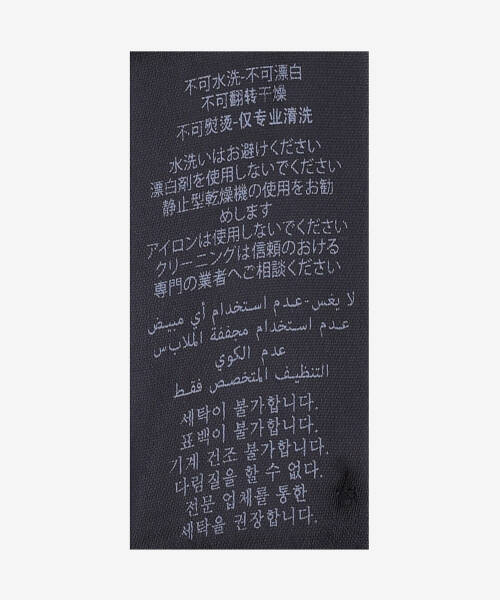 不可水洗-不可漂白
不可翻转干燥
不可熨烫-仅专业清洗
水洗いはお避けください
漂白剤を使用しないでください
静止型乾燥機の使用をお勧
めします
アイロンは使用しないでください
クリーニングは信頼のおける
専門の業者へご相談ください
لا يغس-عدم استخدام أي مبيض
عدم استخدام مجففة الملابس
عدم الكوي
التنظيف المتخصص فقط
세탁이 불가합니다.
표백이 불가합니다.
기계 건조 불가합니다.
다림질을 할 수 없다.
전문 업체를 통한
세탁을 권장합니다.